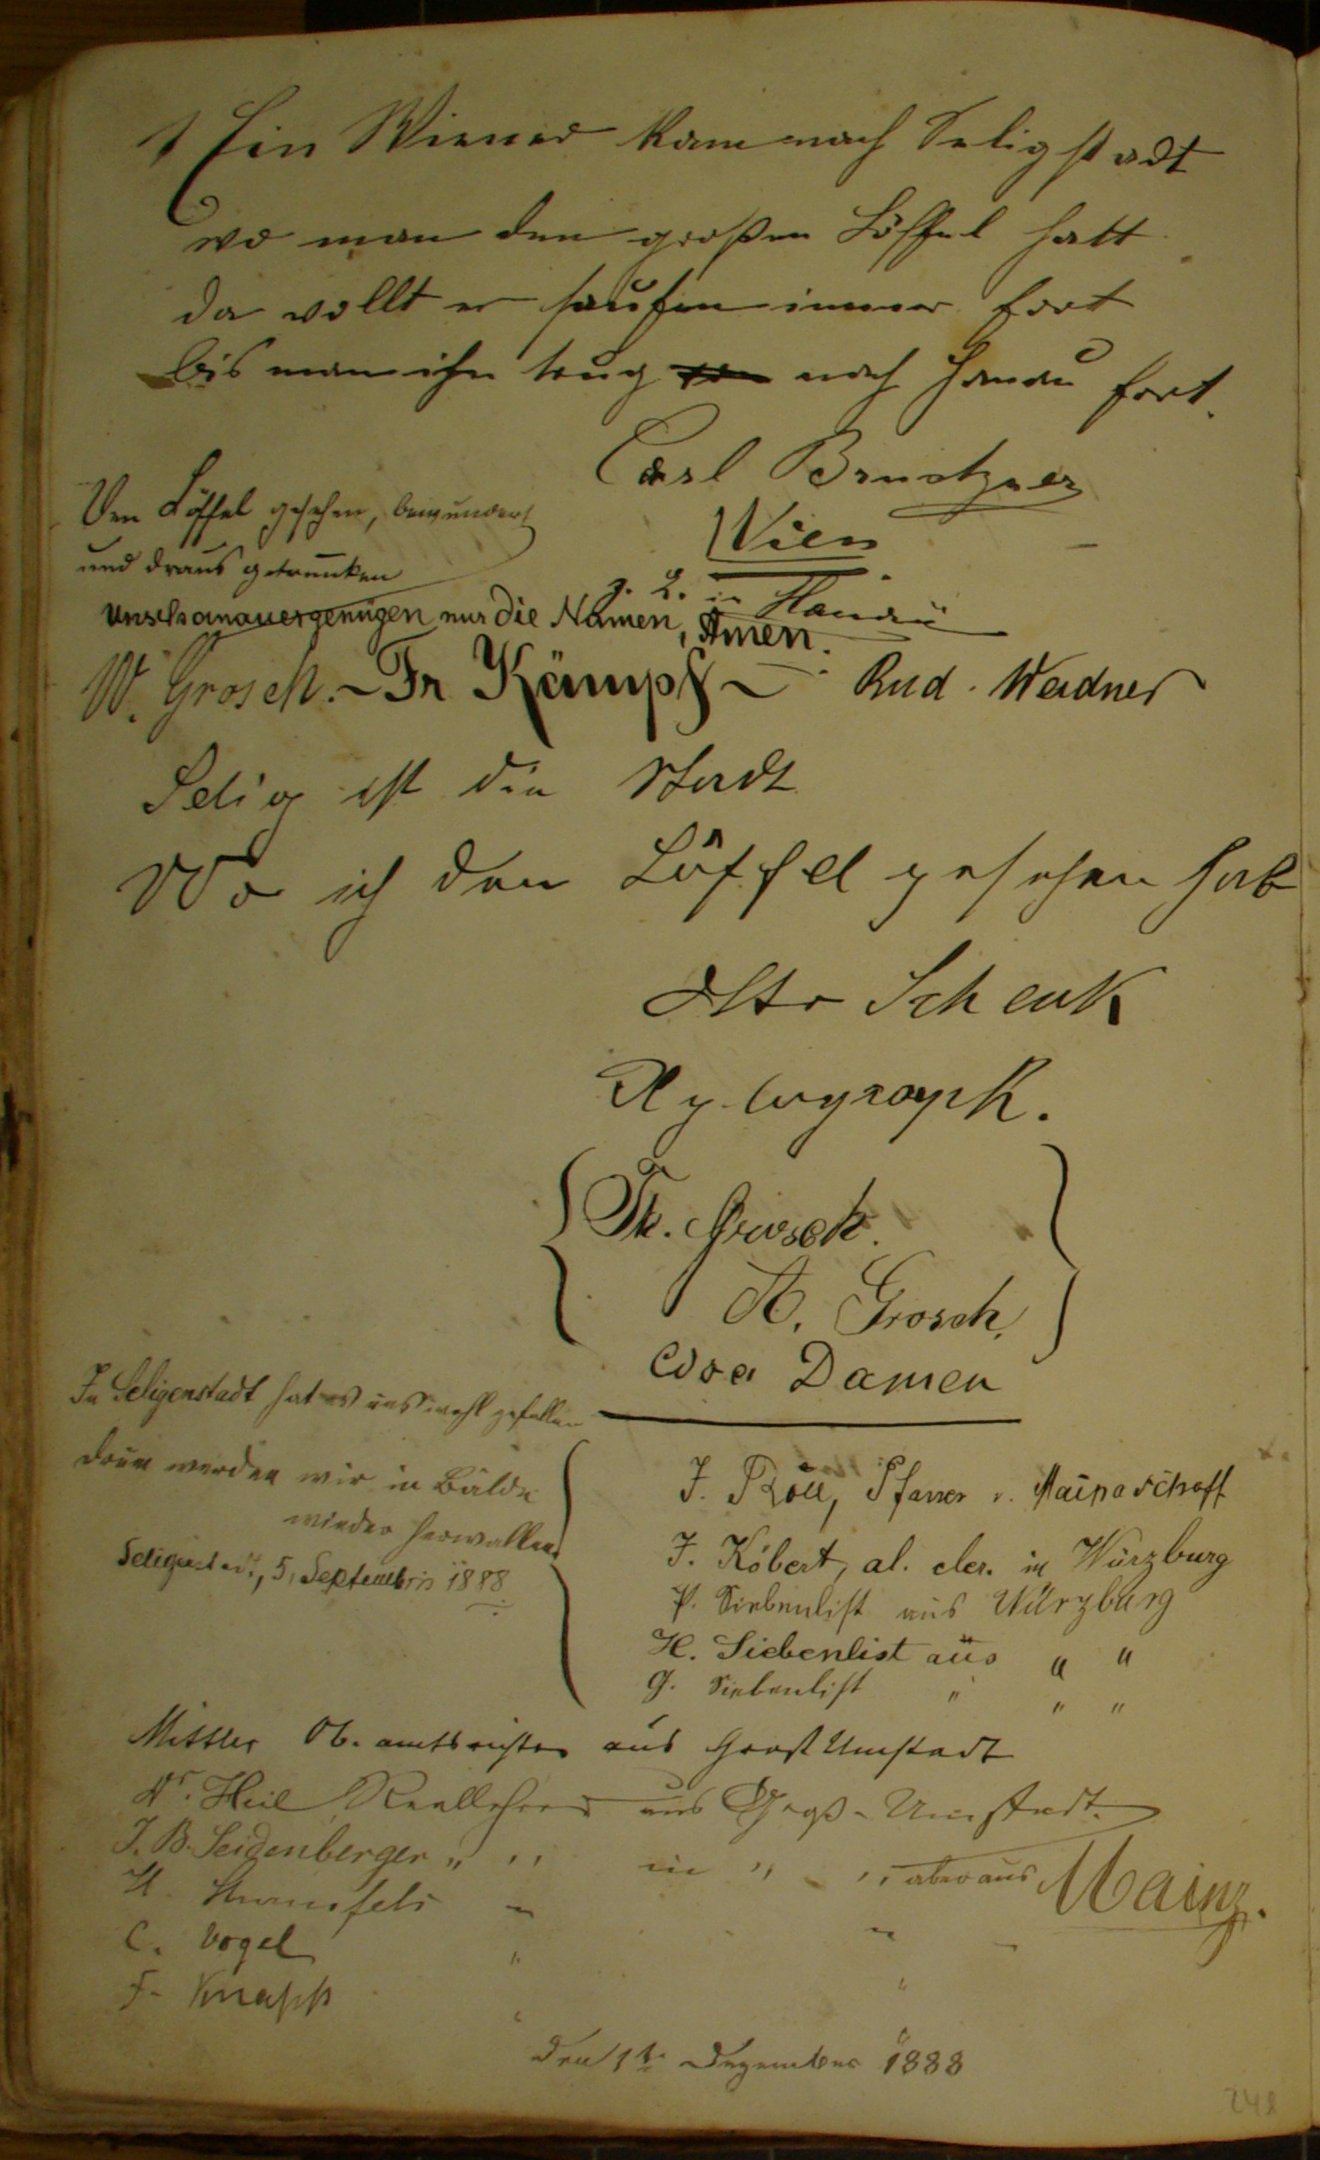 Ein Wiener kam nach Seligstadt
wo man den großen Löffel hatt
da wollt er saufen immer fort
bis man ihn trug nach Hanau fort.
Carl
Wien
z. Z. in Hanau
Den Löffel gesehen, bewundert
und draus getrunken
uns Hanauer genügen nur die Namen, Amen.
W. Grosch. - Fr Kämpf - Rud. Weidner
Selig ist die Stadt
Wo ich den Löffel gesehen hab
Otto Schenk
Xylograph.
Grosch.
A. Grosch.
Damen
In Seligenstadt hat es uns wohl gefallen
drum werden wir in Bälde
wieder herwallen.
Seligenstadt, 5. Septembris 1888
J. Röll, Pfarrer v. Mainaschaff
J. Köbert, al. cler. in Würzburg
P. Siebenlist aus Würzburg
H. Siebenlist aus " "
G. Siebenlist " " "
Mittler Ob. amtsrichter aus Groß Umstadt
Dr. Heil Reallehrer aus Groß-Umstadt.
J. B. Seidenberger " " in " " aber aus Mainz.
H.
C. Vogel " "
F. Knapp " "
den 1t. Dezember 1888
248